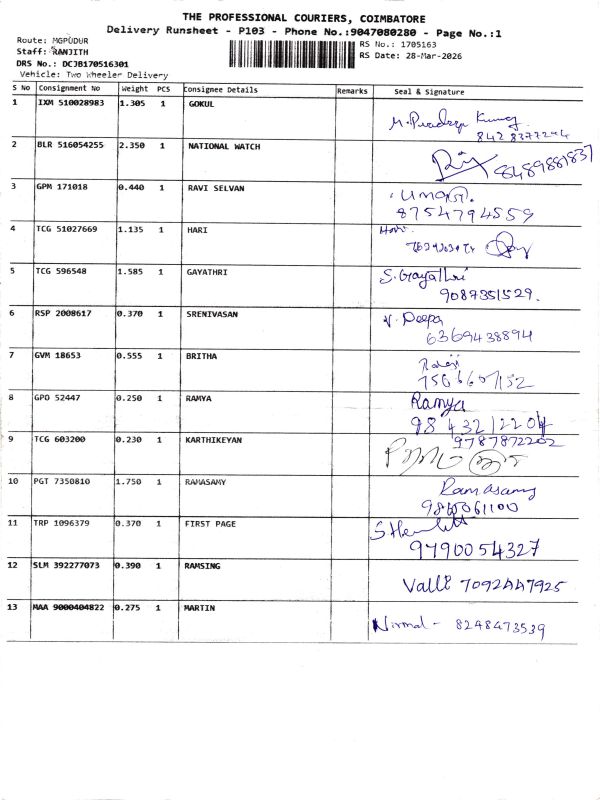 THE PROFESSIONAL COURIERS, COIMBATORE
Delivery Runsheet - P103 - Phone No.:9047080280 - Page No.:1
Route: MGPUDUR
Staff: RANJITH
DRS No.: DCJB170516301
Vehicle: Two Wheeler Delivery
RS No.: 1705163
RS Date: 28-Mar-2026
S No Consignment No Weight PCS Consignee Details Remarks Seal & Signature
1 IXM 510028983 1.305 1 GOKUL
M. Pradeep Kumar
8428377244
2 BLR 516054255 2.350 1 NATIONAL WATCH
8489881837
3 GPM 171018 0.440 1 RAVI SELVAN
8754794559
4 TCG 51027669 1.135 1 HARI
Hari
5 TCG 596548 1.585 1 GAYATHRI
S. Gayathri
9087351529.
6 RSP 2008617 0.370 1 SRENIVASAN
V. Deepa
6369438894
7 GVM 18653 0.555 1 BRITHA
8 GPO 52447 0.250 1 RAMYA
Ramya
9843212204
9 TCG 603200 0.230 1 KARTHIKEYAN
9787872202
10 PGT 7350810 1.750 1 RAMASAMY
Ramasamy
11 TRP 1096379 0.370 1 FIRST PAGE
9790054327
12 SLM 392277073 0.390 1 RAMSING
Valli 7092447925
13 MAA 9000404822 0.275 1 MARTIN
Nirmal - 8248473539